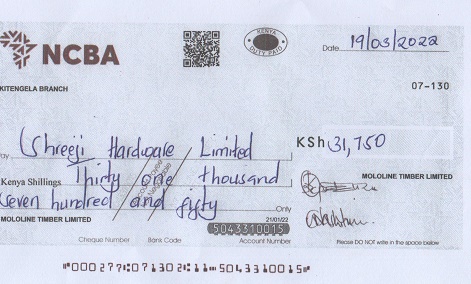 NCBA
KENYA
DUTY PAID
Date 19/03/2022
KITENGELA BRANCH
07-130
Pay Shreeji Hardware Limited
KSh 31,750
Kenya Shillings Thirty one thousand
MOLOLINE TIMBER LIMITED
Seven hundred and fifty Only
MOLOLINE TIMBER LIMITED
21/01/22
5043310015
Cheque Number Bank Code Account Number
Please DO NOT write in the space below
"000277:071302:11"5043310015"